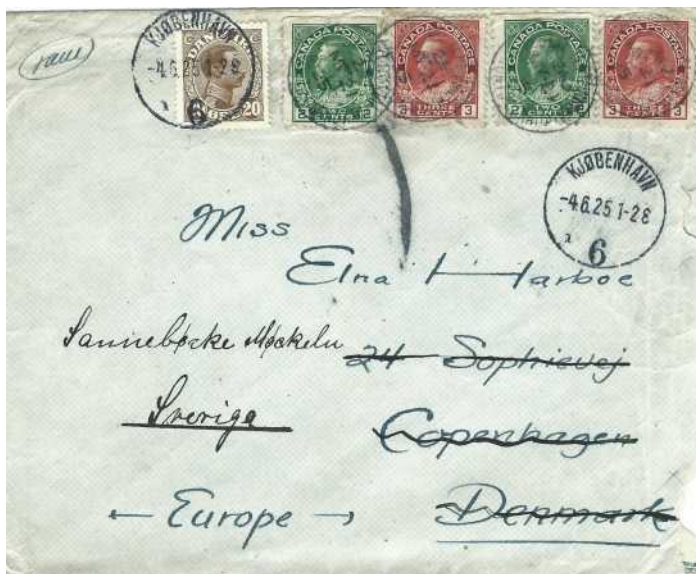 KJØBENHAVN
-4.6.25 1-2 E
6
DANMARK
20
ØRE
CANADA POSTAGE
2 CENTS 2
CANADA POSTAGE
3 THREE CENTS 3
CANADA POSTAGE
2 TWO CENTS 2
CANADA POSTAGE
3 THREE CENTS 3
KJØBENHAVN
-4.6.25 1-2 E
6
Miss
Elna Harboe
Sannebøcke Møckeln
24 Sophievej
Sveriga
Copenhagen
← Europe →
Denmark